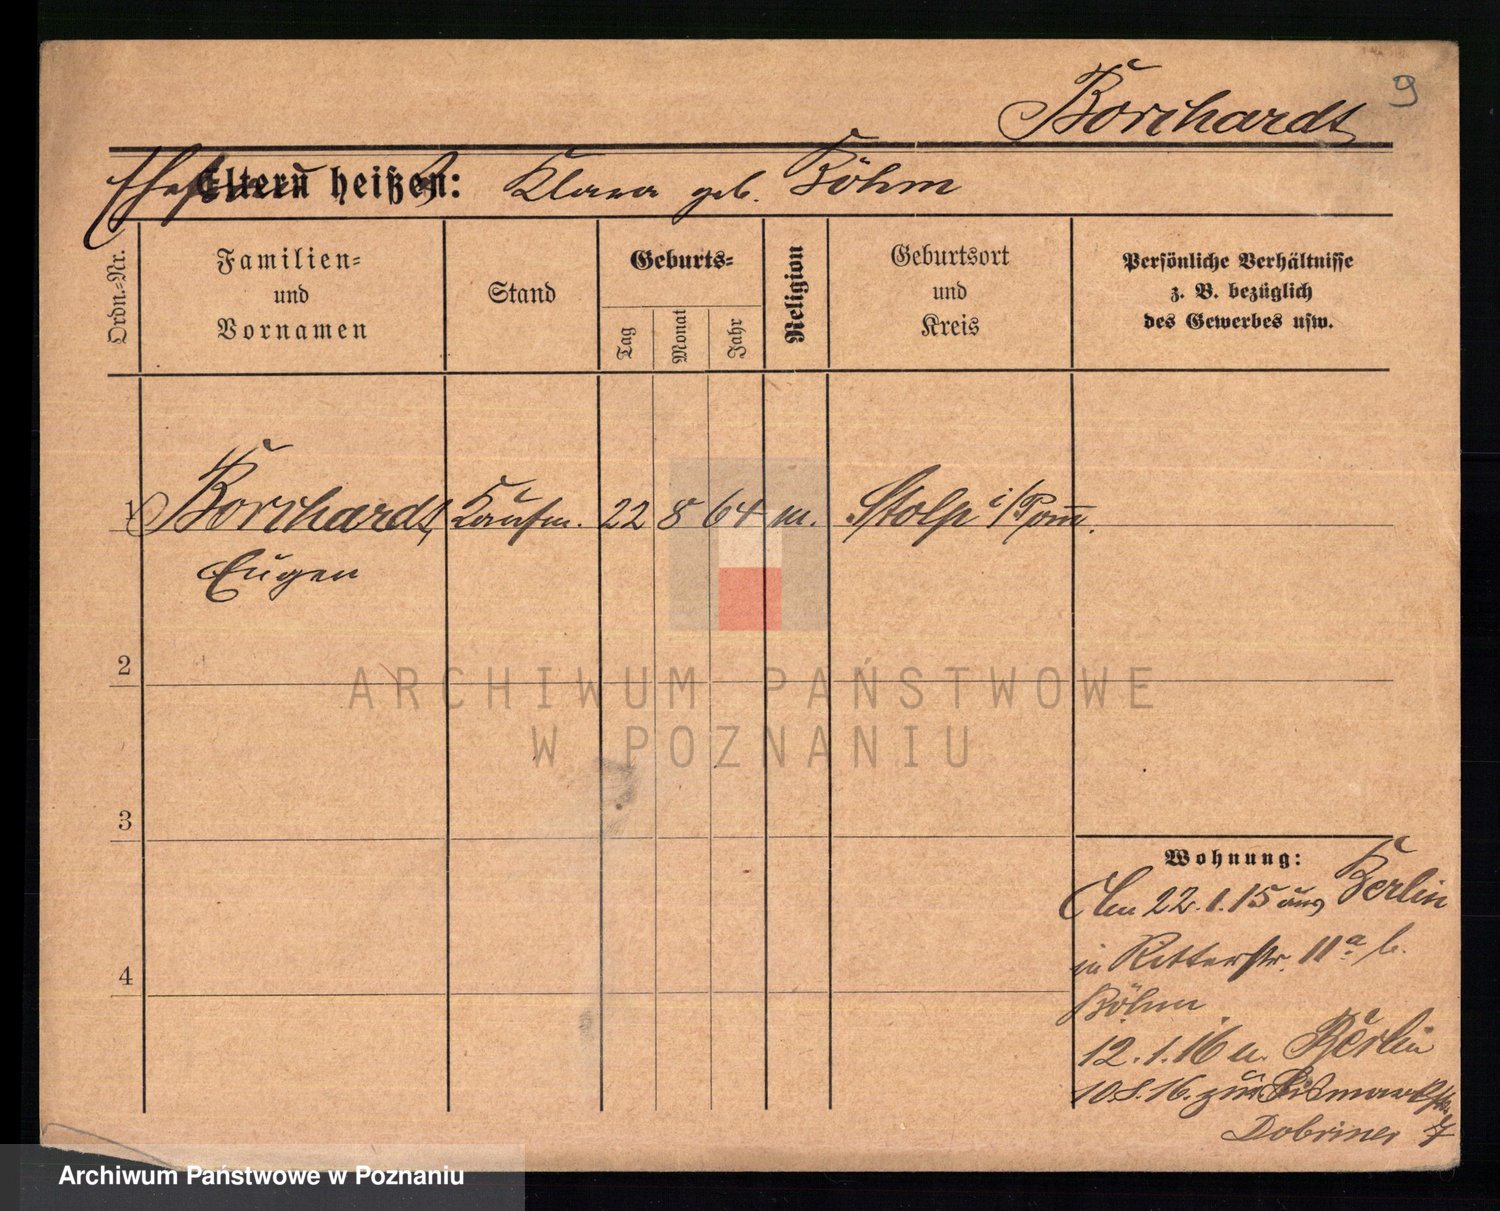 Borchardt
9
Eltern heißen: Klara geb. Böhm
Ordn.-Nr.
Familien-
und
Vornamen
Stand
Geburts-
Tag
Monat
Jahr
Religion
Geburtsort
und
Kreis
Persönliche Verhältnisse
z. B. bezüglich
des Gewerbes usw.
1 Borchardt, Kaufm. 22 8 64 m. Stolp i/Pom.
Eugen
2
ARCHIWUM PAŃSTWOWE
W POZNANIU
3
4
Wohnung:
Am 22.1.15 aus Berlin
in Ritterstr. 11a b.
Böhm
12.1.16 n. Berlin
10.8.16. zur Bismarckstr. 7
Dobriner
Archiwum Państwowe w Poznaniu